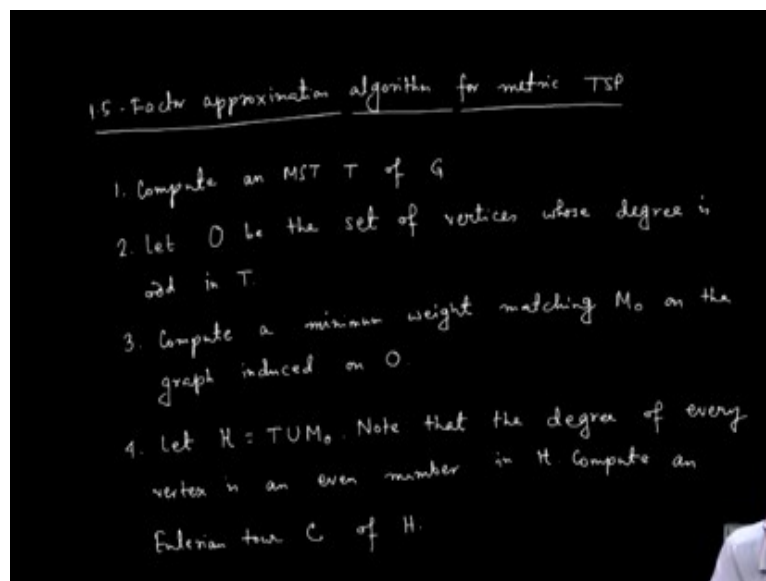 1.5-Factor approximation algorithm for metric TSP
1. Compute an MST T of G
2. Let O be the set of vertices whose degree is
odd in T.
3. Compute a minimum weight matching M₀ on the
graph induced on O.
4. Let H = TUM₀. Note that the degree of every
vertex is an even number in H. Compute an
Eulerian tour C of H.